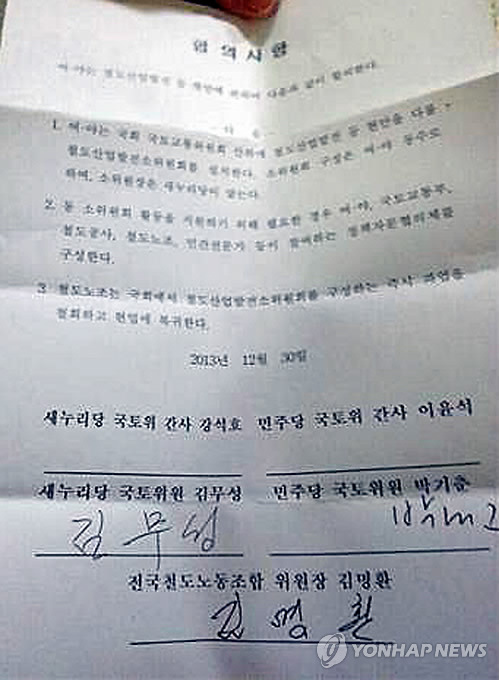 합의사항
여·야는 철도산업발전 등 현안에 관하여 다음과 같이 합의한다.
- 다 음 -
1. 여·야는 국회 국토교통위원회 산하에 철도산업발전 등 현안을 다룰
철도산업발전소위원회를 설치한다. 소위원회 구성은 여·야 동수로
하며, 소위원장은 새누리당이 맡는다.
2. 동 소위원회 활동을 지원하기 위해 필요한 경우 여·야, 국토교통부,
철도공사, 철도노조, 민간전문가 등이 참여하는 정책자문협의체를
구성한다.
3. 철도노조는 국회에서 철도산업발전소위원회를 구성하는 즉시 파업을
철회하고 현업에 복귀한다.
2013년 12월 30일
새누리당 국토위 간사 강석호 민주당 국토위 간사 이윤석
새누리당 국토위원 김무성 민주당 국토위원 박기춘
김무성
전국철도노동조합 위원장 김명환
김명환
YONHAP NEWS